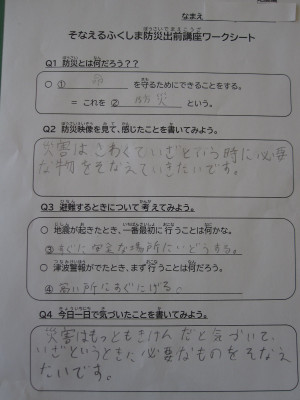 なまえ
そなえるふくしま防災出前講座ワークシート
Q1 防災とは何だろう？？
○ ① 命 を守るためにできることをする。
＝ これを ② 防災 という。
Q2 防災映像を見て、感じたことを書いてみよう。
災害はこわくていざという時に必要
な物をそなえていきたいです。
Q3 避難するときについて考えてみよう。
○ 地震が起きたとき、一番最初に行うことは何かな。
③すぐに安全な場所にいどうする。
○ 津波警報がでたとき、まず行うことは何だろう。
④ 高い所にすぐににげる。
Q4 今日一日で気づいたことを書いてみよう。
災害はもっともきけんだと気づいて、
いざというときに必要なものをそなえ
たいです。